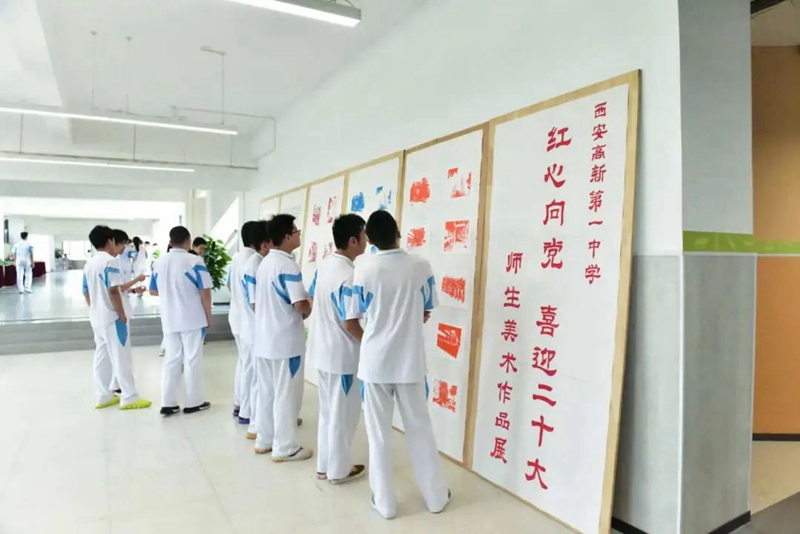 西安高新第一中学
红心向党 喜迎二十大
师生美术作品展